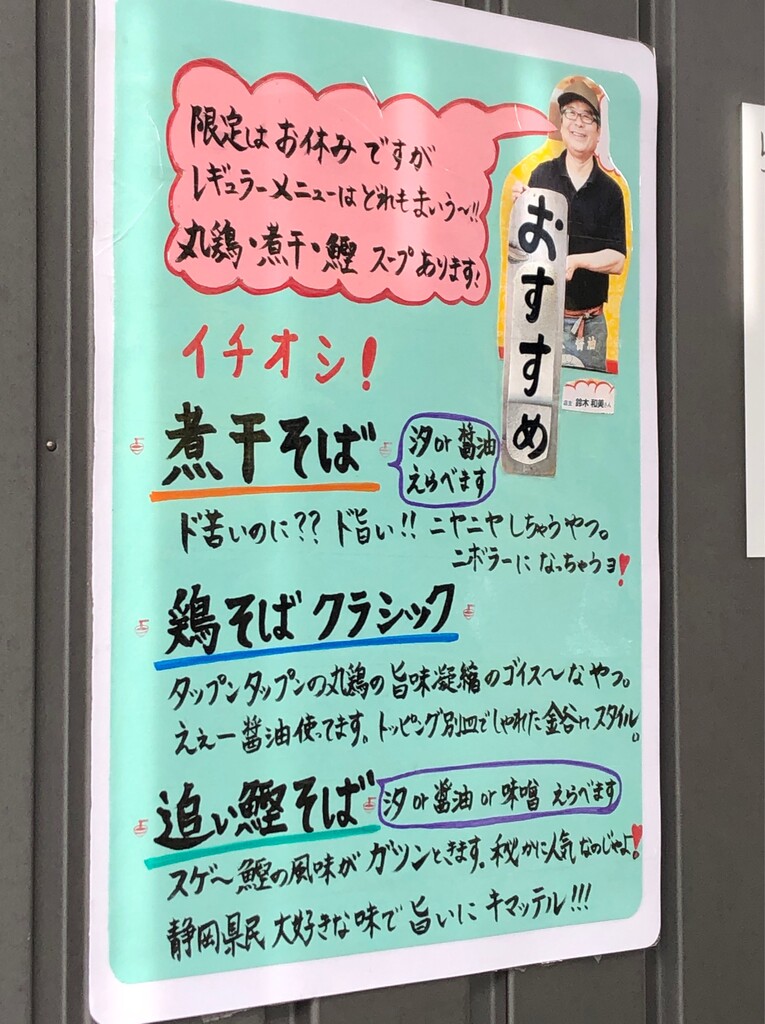 限定はお休みですが
レギュラーメニューはどれもまいう〜!!
丸鶏・煮干・鰹 スープあります!
おすすめ
鈴木 和美さん
イチオシ!
煮干そば
汐or醤油
えらべます
ド苦いのに?? ド旨い!! ニヤニヤしちゃうやつ。
ニボラーになっちゃうヨ!
鶏そば クラシック
タップンタップンの丸鶏の旨味凝縮のゴイス〜なやつ。
ええー醤油使ってます。トッピング別皿でしゃれた金谷nスタイル。
追い鰹そば
汐or醤油or味噌 えらべます
スゲ〜鰹の風味がガツンときます。秘かに人気なのじゃよ!
静岡県民大好きな味で旨いにキマッテル!!!